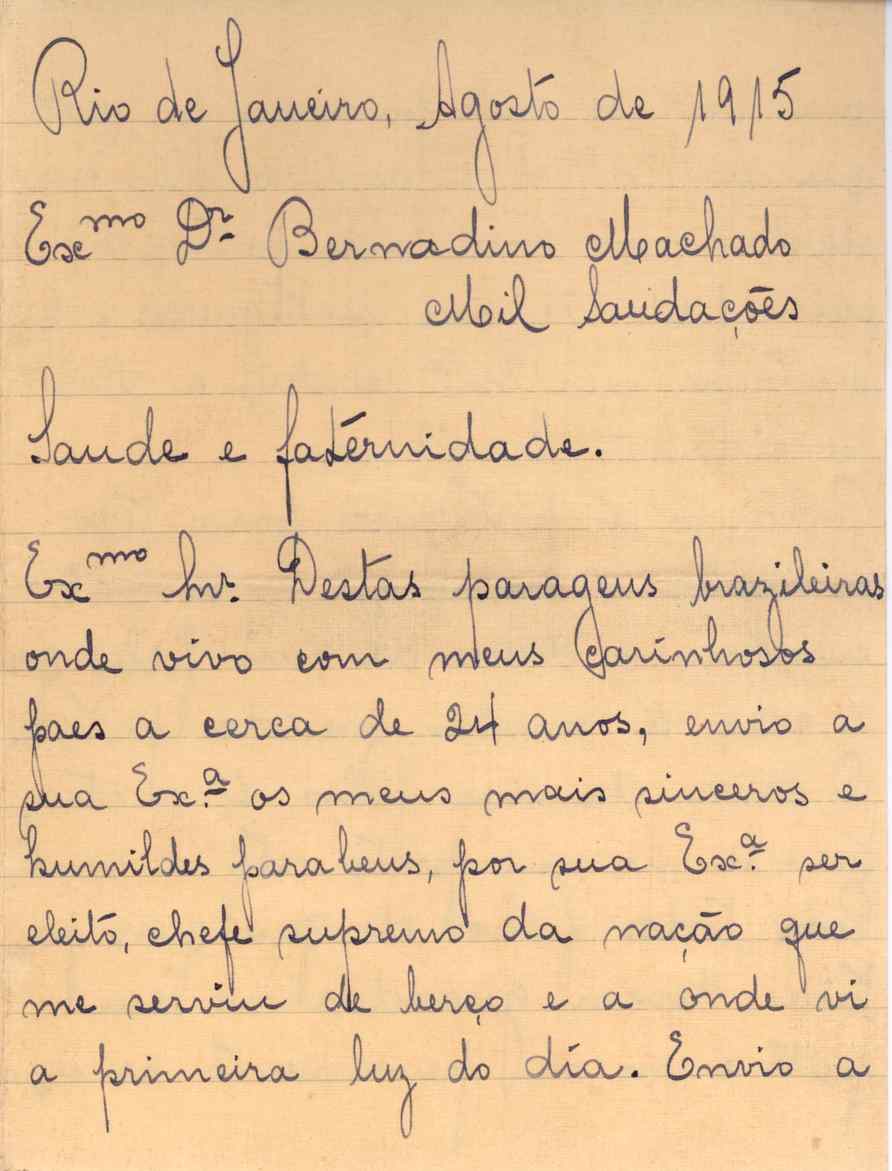 Rio de Janeiro, Agosto de 1915
Exmo Dr. Bernadino Machado
Mil Saudações
Saude e fatérnidade.
Exmo Snr. Destas paragens brazileiras
onde vivo com meus carinhosos
paes a cerca de 24 anos, envio a
sua Exª. os meus mais sinceros e
humildes parabens, por sua Exª. ser
eleito, chefe supremo da nação que
me serviu de berço e a onde vi
a primeira luz do día. Envio a